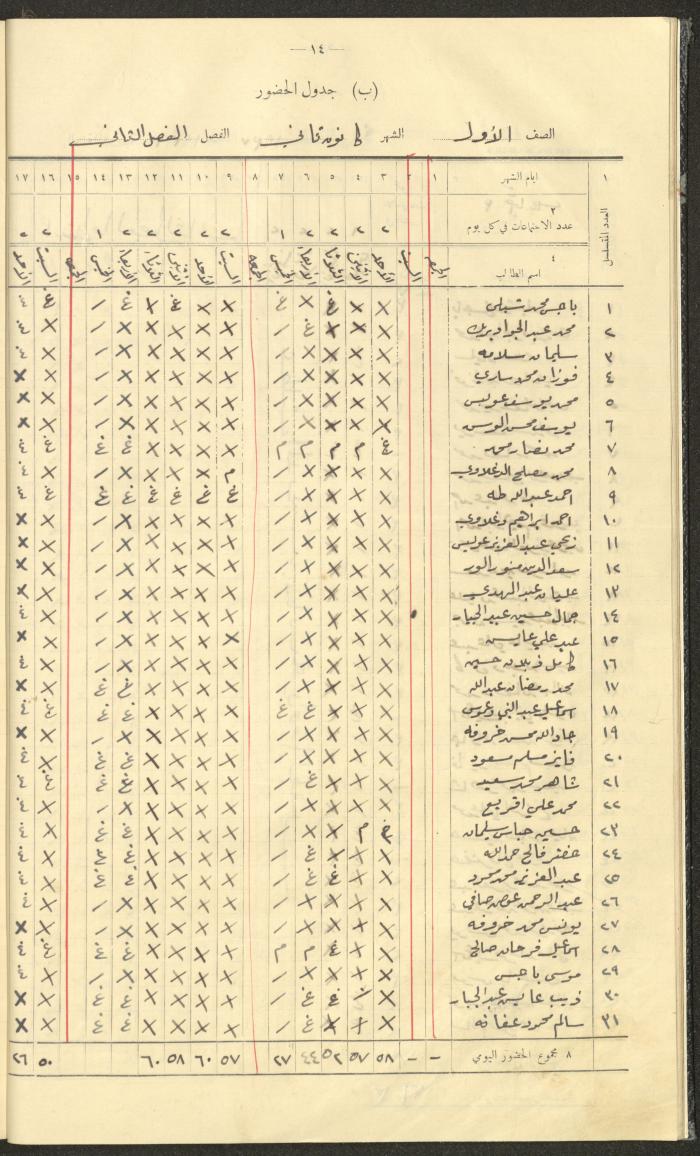 — ١٤ —
(ب) جدول الحضور
الصف الأول الشهر كانون ثاني الفصل الفصل الثاني
١ ايام الشهر ١ ٢ ٣ ٤ ٥ ٦ ٧ ٨ ٩ ١٠ ١١ ١٢ ١٣ ١٤ ١٥ ١٦ ١٧
العدد المتسلسل
٢
عدد الاجتماعات في كل يوم ٢ ٢ ٢ ٢ ١ ٢ ٢ ٢ ٢ ٢ ١ ٢ ٢
٤
اسم الطالب الجمعة السبت الاحد الاثنين الثلاثاء الاربعاء الخميس الجمعة السبت الاحد الاثنين الثلاثاء الاربعاء الخميس الجمعة السبت الاحد
١ باجس محمد شبلي X X غ X غ X X غ X غ / غ غ
٢ محمد عبد الجواد X X X غ / X X X X X / X غ
٣ سليمان سلامه X X X X / X X X X X / X غ
٤ فوزان محمد ساري X X X X / X X X X X / X X
٥ محمد يوسف عويس X X X X / X X X X X / X X
٦ يوسف محسن X X X X / X X X X X / X X
٧ محمد نصار محمد غ م م م م X X X X غ غ غ غ
٨ محمد مصلح X X X X / م X X X X / X غ
٩ احمد عبد الله طه X X X X / غ غ غ غ غ غ غ غ
١٠ احمد ابراهيم X X X X / X X X X X / X X
١١ زكي عبد العزيز عويس X X X X / X X X X X / X X
١٢ سعد الدين منور X X X X / X X X X X / X X
١٣ عليان عبد المهدي X X X X / X X X X X / X X
١٤ جمال حسين عبد الجبار X X X X / X X X X X / X غ
١٥ عبد علي عايس X X X X / X X X X X / X X
١٦ كامل ذبلان حسين X X X X / X X X X X / X غ
١٧ محمد رمضان عبد الله X X X X / X X X X غ غ X X
١٨ اسماعيل عبد النبي X X غ غ غ X X X X غ غ غ غ
١٩ جاد الله محسن خروفه X X X X / X X X X X / X X
٢٠ فايز مسلم مسعود X X X X / X X X X غ غ X غ
٢١ شاهر محمد سعيد X X X غ / X X X X غ غ غ غ
٢٢ محمد علي اقريع X X X X / X X X X X / X غ
٢٣ حسين عباس سليمان غ م X X / X X X X غ غ X غ
٢٤ خضر فالح حمدالله X X X غ / X X X X غ غ X غ
٢٥ عبد العزيز محمد X X غ غ / X X X X غ غ X غ
٢٦ عبد الرحمن عوض صافي X X X X / X X X X X / X غ
٢٧ يونس محمد خروفه X X X X / X X X X X / X X
٢٨ اسماعيل فرحان صالح X X غ م م X X X X غ غ غ غ
٢٩ موسى باجس X X X X / X X X X X / X غ
٣٠ ذيب عايس عبد الجبار X غ غ / X X X X غ غ X X
٣١ سالم محمود عفانه X X X غ / X X X X غ غ X X
٨ مجموع الحضور اليومي – – ٥٨ ٥٧ ٥٢ ٤٤ ٢٧ ٥٧ ٦٠ ٥٨ ٦٠ ٥٠ ٢٦